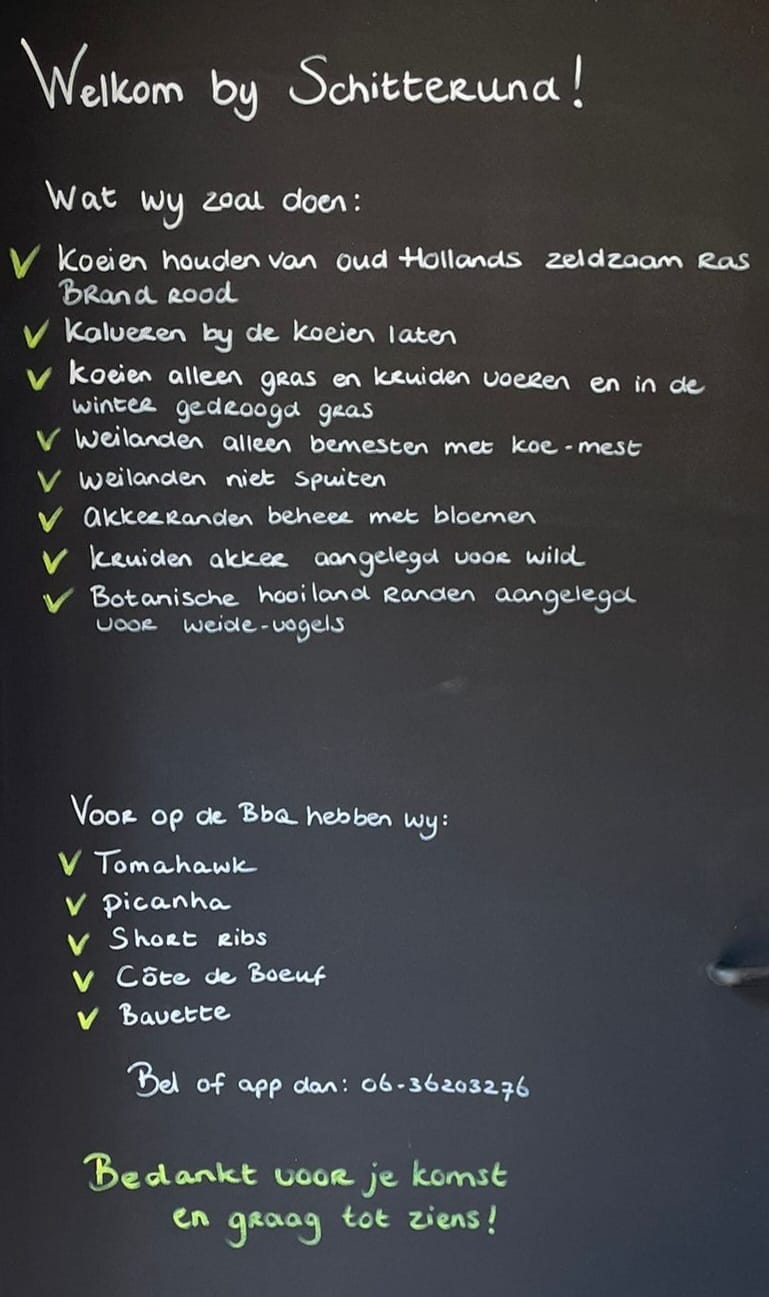 Welkom by Schitteruna!
Wat wy zoal doen:
V Koeien houden van oud Hollands zeldzaam Ras
Brand Rood
V Kalveren by de koeien laten
V Koeien alleen gras en kruiden voeren en in de
winter gedroogd gras
V Weilanden alleen bemesten met koe-mest
V Weilanden niet spuiten
V Akkerranden beheer met bloemen
V Kruiden akker aangelegd voor wild
V Botanische hooiland Randen aangelegd
voor weide-vogels
Voor op de BbQ hebben wy:
V Tomahawk
V Picanha
V Short Ribs
V Côte de Boeuf
V Bavette
Bel of app dan: 06-36203276
Bedankt voor je komst
en graag tot ziens!